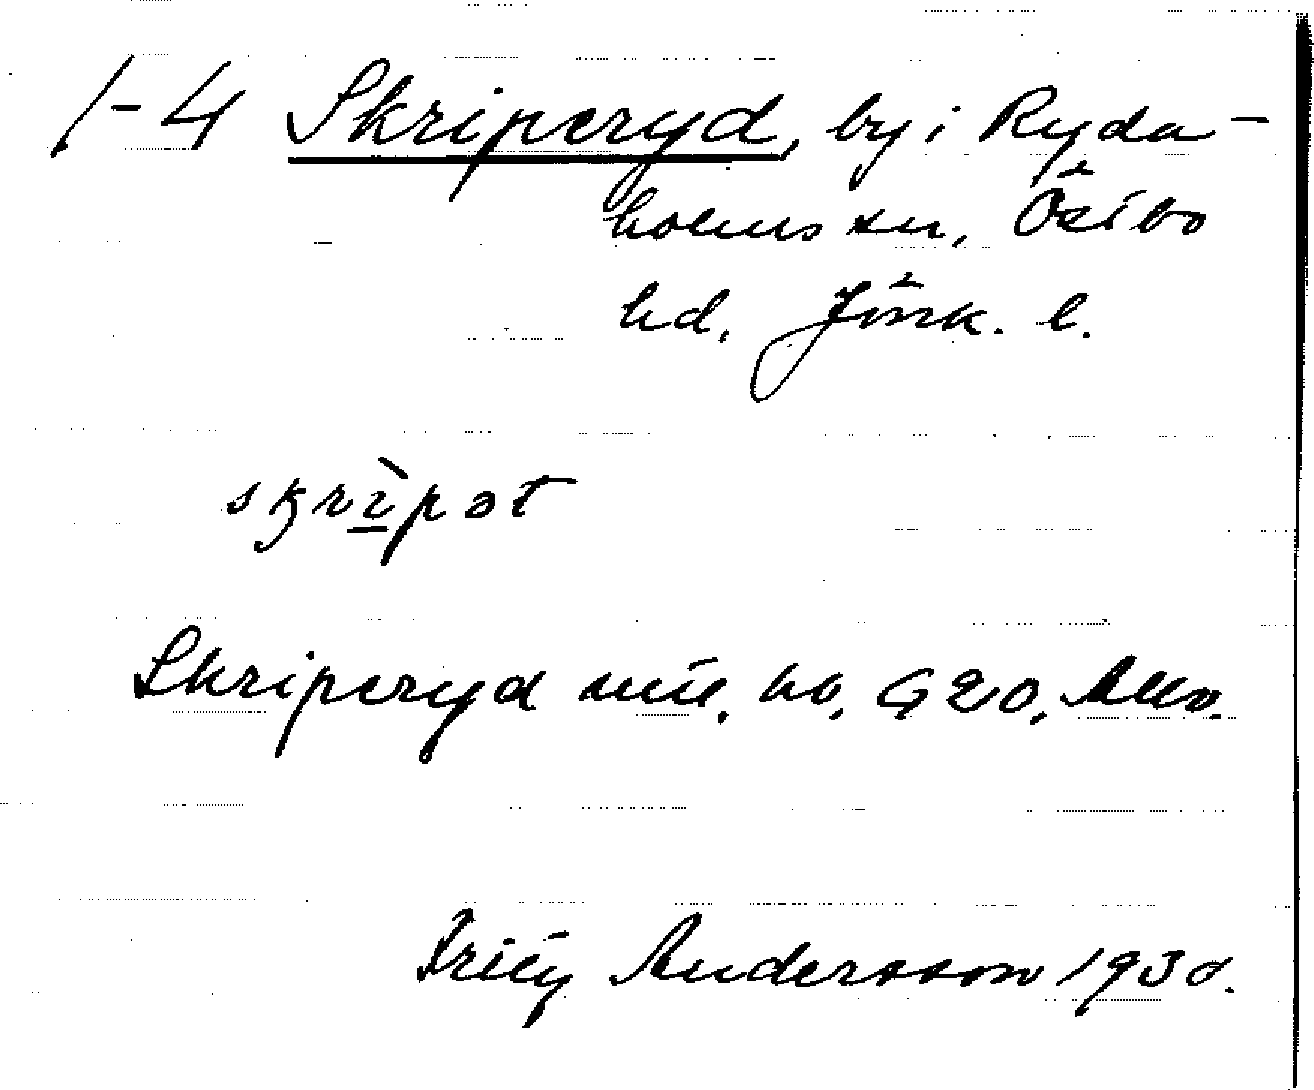 1-4 Skriperyd, by i Ryda-
holms sn, Östbo
hd, Jönk. l.
skrìpət
Skriperyd mtl. ho, G20,
Fritz Andersson 1930.